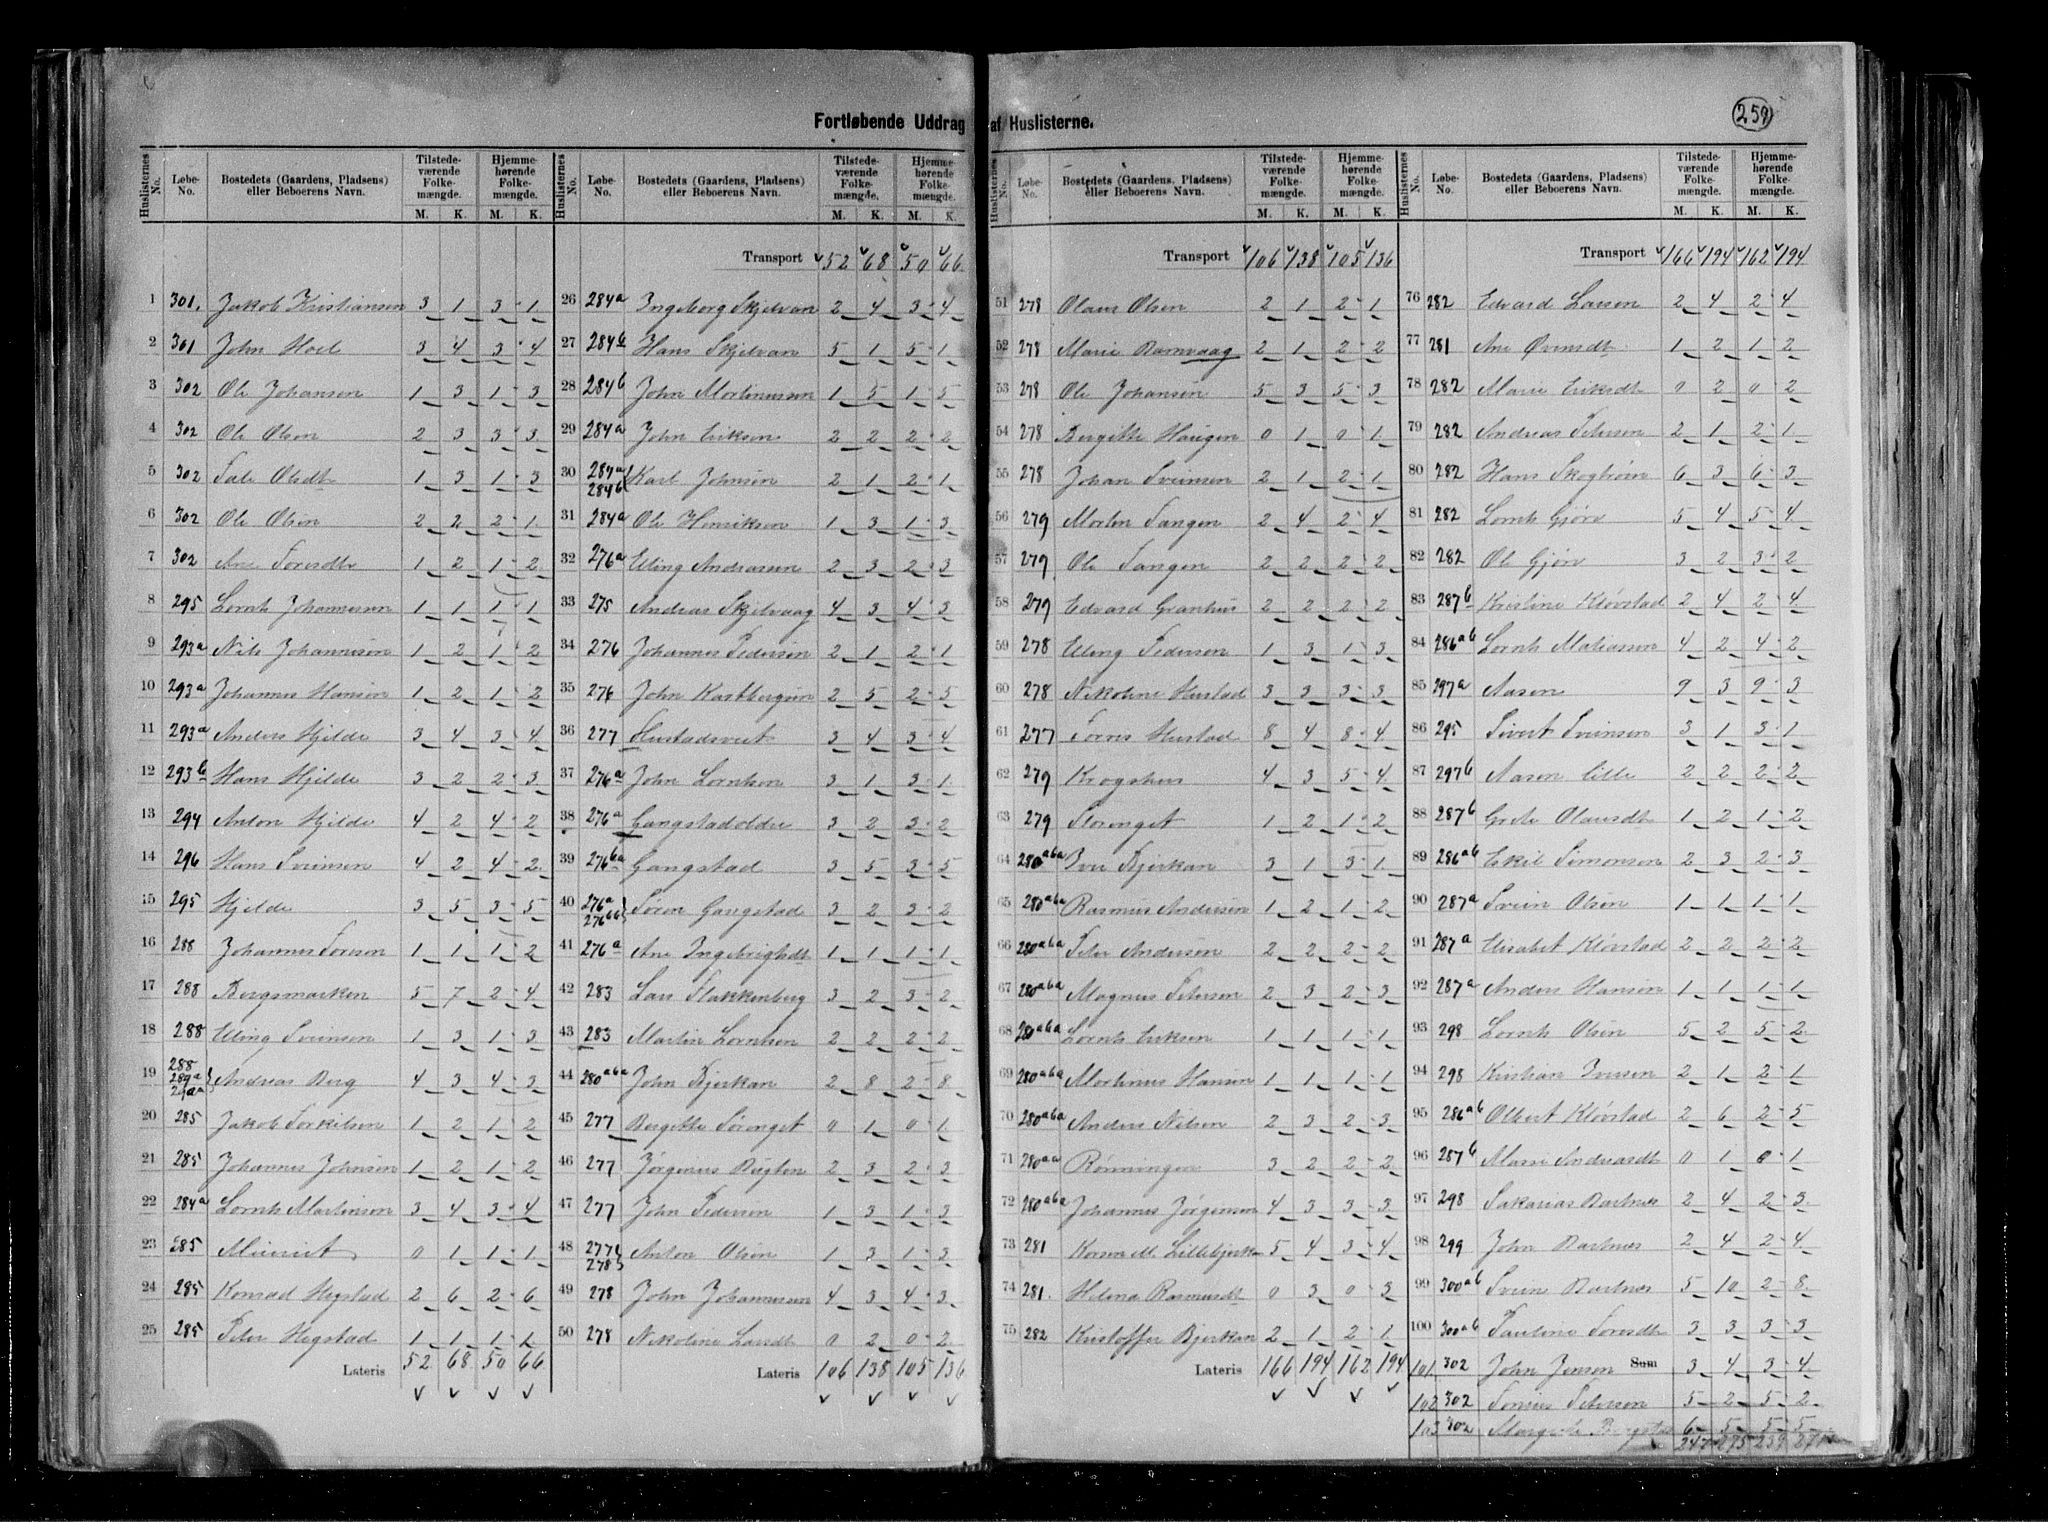 259
Fortløbende Uddrag af Huslisterne.
Huslisternes No. Løbe-No. Bostedets (Gaardens, Pladsens) eller Beboerens Navn. Tilstede-værende Folke-mængde. M. K. Hjemme-hørende Folke-mængde. M. K.
1 301. Jakob Kristiansen 3 1 3 1
2 301 John Hoel 3 4 3 4
3 302 Ole Johansen 1 3 1 3
4 302 Ole Olsen 2 3 3 3
5 302 Olsdt 1 3 1 3
6 302 Ole Olsen 2 2 2 1
7 302 Ane 1 2 1 2
8 295 Lornts Johannessen 1 1 1 1
9 293a Nils Johannesen 1 2 1 2
10 293a Johannes Hansen 1 2 1 2
11 293a Anders Hjelde 3 4 3 4
12 293b Hans Hjelde 3 2 2 3
13 294 Anton Hjelde 4 2 4 2
14 296 Hans Sveinsen 4 2 4 2
15 295 Hjelde 3 5 3 5
16 288 Johannes Toresen 1 1 1 2
17 288 Bergsmarken 5 7 2 4
18 288 Elling Sveinsen 1 3 1 3
19 288 289a 290a Andreas Berg 4 3 4 3
20 285 Jakob Torkilsen 1 2 1 2
21 285 Johannes Johnsen 1 2 1 2
22 284a Lornts Martinsen 3 4 3 4
23 285 0 1 1 1
24 285 Konrad Hegstad 2 6 2 6
25 285 Peter Hegstad 1 1 1 1
Lateris 52 68 50 66
Huslisternes No. Løbe-No. Bostedets (Gaardens, Pladsens) eller Beboerens Navn. Tilstede-værende Folke-mængde. M. K. Hjemme-hørende Folke-mængde. M. K.
Transport 52 68 50 66
26 284a Ingeborg Skjelvan 2 4 3 4
27 284b Hans Skjelvan 5 1 5 1
28 284b John Mortinussen 1 5 1 5
29 284a John Eriksen 2 2 2 2
30 284a 284b Karl Johnsen 2 1 2 1
31 284a Ole Henriksen 1 3 1 3
32 276a Elling Andreassen 2 3 2 3
33 275 Andreas Skjelvaag 4 3 4 3
34 276 Johannes Pedersen 2 1 2 1
35 276 John Kastbergsen 2 5 2 5
36 277 Hustadsveet 3 4 3 4
37 276a John Lorntsen 3 1 3 1
38 276a Gangstadoldre 3 2 3 2
39 276ba Gangstad 3 5 3 5
40 276a 276bb Søren Gangstad 3 2 3 2
41 276a Ane Ingebrigtsdt 1 1 1 1
42 283 Lars Flakkenberg 3 2 3 2
43 283 Martin Lorntsen 2 2 2 2
44 280aba John Bjerkan 2 8 2 8
45 277 Bergitte Sørenget 0 1 0 1
46 277 Jørginus Bugten 2 3 2 3
47 277 John Pedersen 1 3 1 3
48 277 278 Anton Olsen 1 3 1 3
49 278 John Johannessen 4 3 4 3
50 278 Nikoline Larsdt 0 2 0 2
Lateris 106 138 105 136
Huslisternes No. Løbe-No. Bostedets (Gaardens, Pladsens) eller Beboerens Navn. Tilstede-værende Folke-mængde. M. K. Hjemme-hørende Folke-mængde. M. K.
Transport 106 138 105 136
51 278 Olaus Olsen 2 1 2 1
52 278 Marie Ramvaag 2 1 2 2
53 278 Ole Johansen 5 3 5 3
54 278 Bergitte Haugen 0 1 0 1
55 278 Johan Sveinsen 2 1 2 1
56 279 Morten Tangen 2 4 2 4
57 279 Ole Tangen 2 2 2 2
58 279 Edvard Granhus 2 2 2 2
59 278 Elling Pedersen 1 3 1 3
60 278 Nikoline Hustad 3 3 3 3
61 277 Torris Hustad 8 4 8 4
62 279 Krogshus 4 3 5 4
63 279 Storenget 1 2 1 2
64 280aba Iver Bjerkan 3 1 3 1
65 280aba Rasmus Andersen 1 2 1 2
66 280aba Peter Andersen 2 2 2 2
67 280aba Magnus Petersen 2 3 2 3
68 280aba Lornts Eriksen 1 1 1 1
69 280aba Mortinus Hansen 1 1 1 1
70 280aba Anders Nilsen 2 3 2 3
71 280aa Rønningen 3 2 2 2
72 280aba Johannes Jørgensen 4 3 3 3
73 281 M. Lillebjerkan 5 4 3 4
74 281. Helena Rasmusdt 0 3 0 3
75 282 Kristoffer Bjerkan 2 1 2 1
Lateris 166 194 162 194
Huslisternes No. Løbe-No. Bostedets (Gaardens, Pladsens) eller Beboerens Navn. Tilstede-værende Folke-mængde. M. K. Hjemme-hørende Folke-mængde. M. K.
Transport 166 194 162 194
76 282 Edvard Larsen 2 4 2 4
77 281 Ane Øvensdt 1 2 1 2
78 282 Marie Eriksdt 0 2 0 2
79 282 Andreas Petersen 2 1 2 1
80 282 Hans Skogtrøen 6 3 6 3
81 282 Lornts Gjørv 5 4 5 4
82 282 Ole Gjørv 3 2 3 2
83 287b Kristine Kløvstad 2 4 2 4
84 286ab Lornts Matiassen 4 2 4 2
85 297a Aasen 9 3 9 3
86 295 Sivert Sveinsen 3 1 3 1
87 297b Aasen lille 2 2 2 2
88 287b Grete Olausdt 1 2 1 2
89 286ab Eskil Simonsen 2 3 2 3
90 287a Svein Olsen 1 1 1 1
91 287a Elisabet Kløvstad 2 2 2 2
92 287a Anders Hansen 1 1 1 1
93 298 Lornts Olsen 5 2 5 2
94 298 Kristian Iversen 2 1 2 1
95 286ab Olbert Kløvstad 2 6 2 5
96 287b Andreasdt 0 1 0 1
97 298 Sakarias Bartnes 2 4 2 3
98 299 John Bartnes 2 4 2 4
99 300ab Svein Bartnes 5 10 2 8
100 300ab Pauline Toresdt 3 3 3 3
Sum
101 302 John Jensen 3 4 3 4
102 302 Petersen 5 2 5 2
103 302 6 5 5 5
247 275 239 271